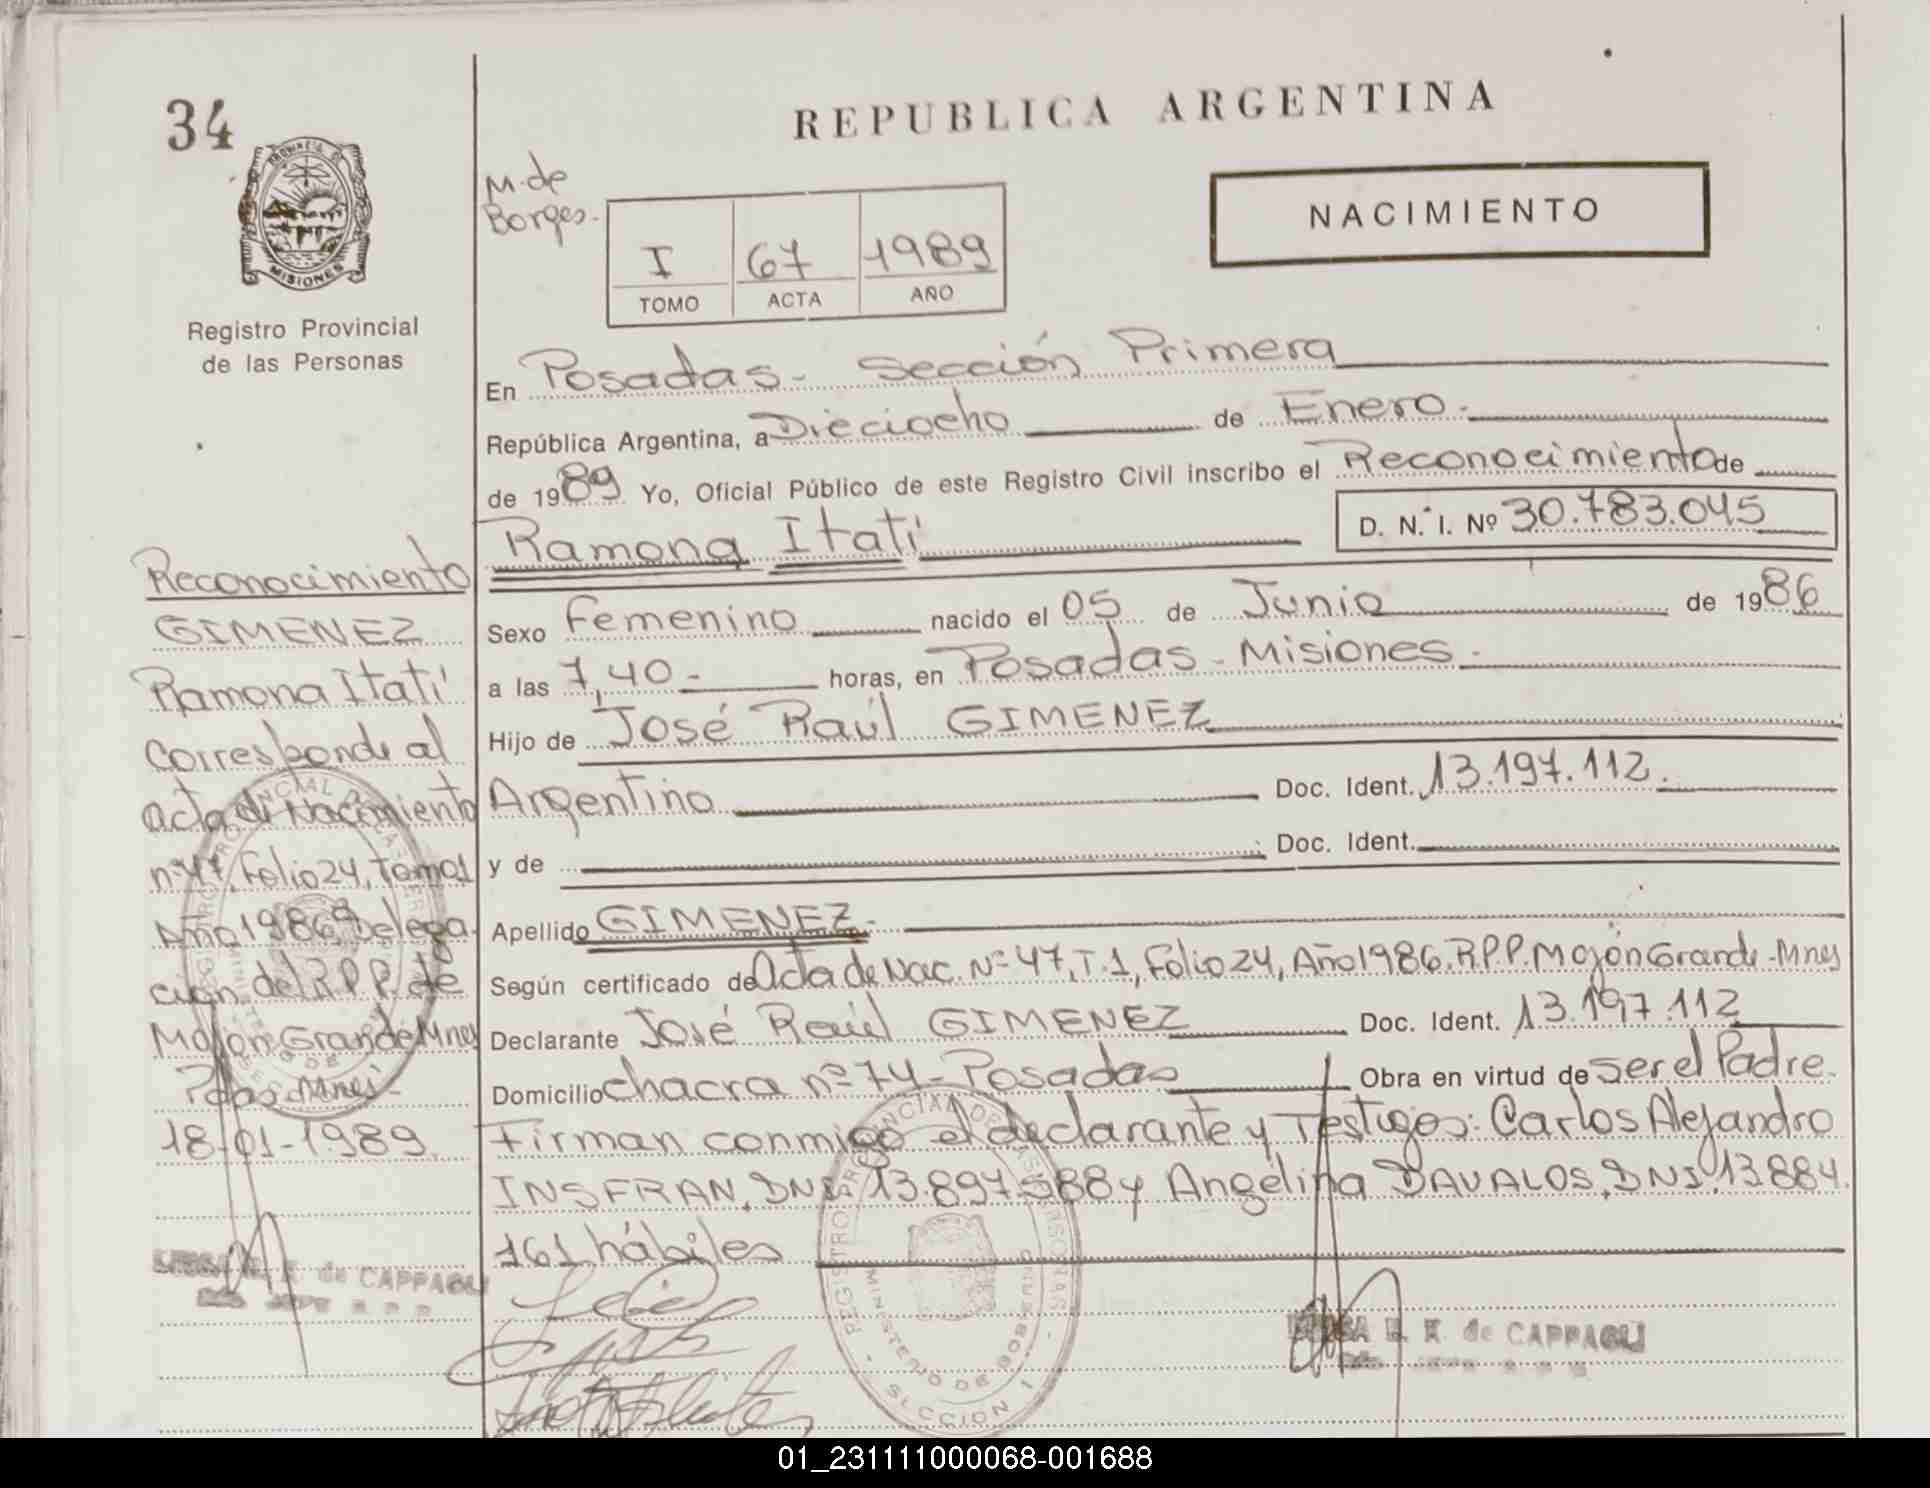 34
PROVINCIA DE
MISIONES
Registro Provincial
de las Personas
REPUBLICA ARGENTINA
M. de
Borges.
NACIMIENTO
I 67 1989
TOMO ACTA AÑO
En Posadas - Sección Primera
República Argentina, a Dieciocho de Enero.-
de 1989 Yo, Oficial Público de este Registro Civil inscribo el Reconocimiento de
Ramona Itatí D. N. I. Nº 30.783.045
Sexo Femenino nacido el 05 de Junio de 1986
a las 7,40.- horas, en Posadas - Misiones.-
Hijo de José Raúl GIMENEZ
Argentino Doc. Ident. 13.197.112.
y de Doc. Ident.
Apellido GIMENEZ.-
Según certificado de Acta de Nac. Nº 47, T.1, Folio 24, Año 1986. R.P.P. Mojón Grande - Mnes
Declarante José Raúl GIMENEZ Doc. Ident. 13.197.112
Domicilio chacra nº 74 - Posadas Obra en virtud de ser el Padre.
Firman conmigo el declarante y Testigos: Carlos Alejandro
INSFRAN, DNI. 13.897.588 y Angélina DAVALOS, DNI. 13.884.
161 hábiles
Reconocimiento
GIMENEZ
Ramona Itatí
Corresponde al
acta de Nacimiento
nº 47, Folio 24, Tomo 1
Año 1986, Delega-
ción del R.P.P. de
Mojon Grande Mnes
Pdas. Mnes.-
18-01-1989.
de CAPPAGLI
REGISTRO PROVINCIAL DE LAS PERSONAS
MINISTERIO DE GOBIERNO
SECCION 1
E. K. de CAPPAGLI
01_231111000068-001688